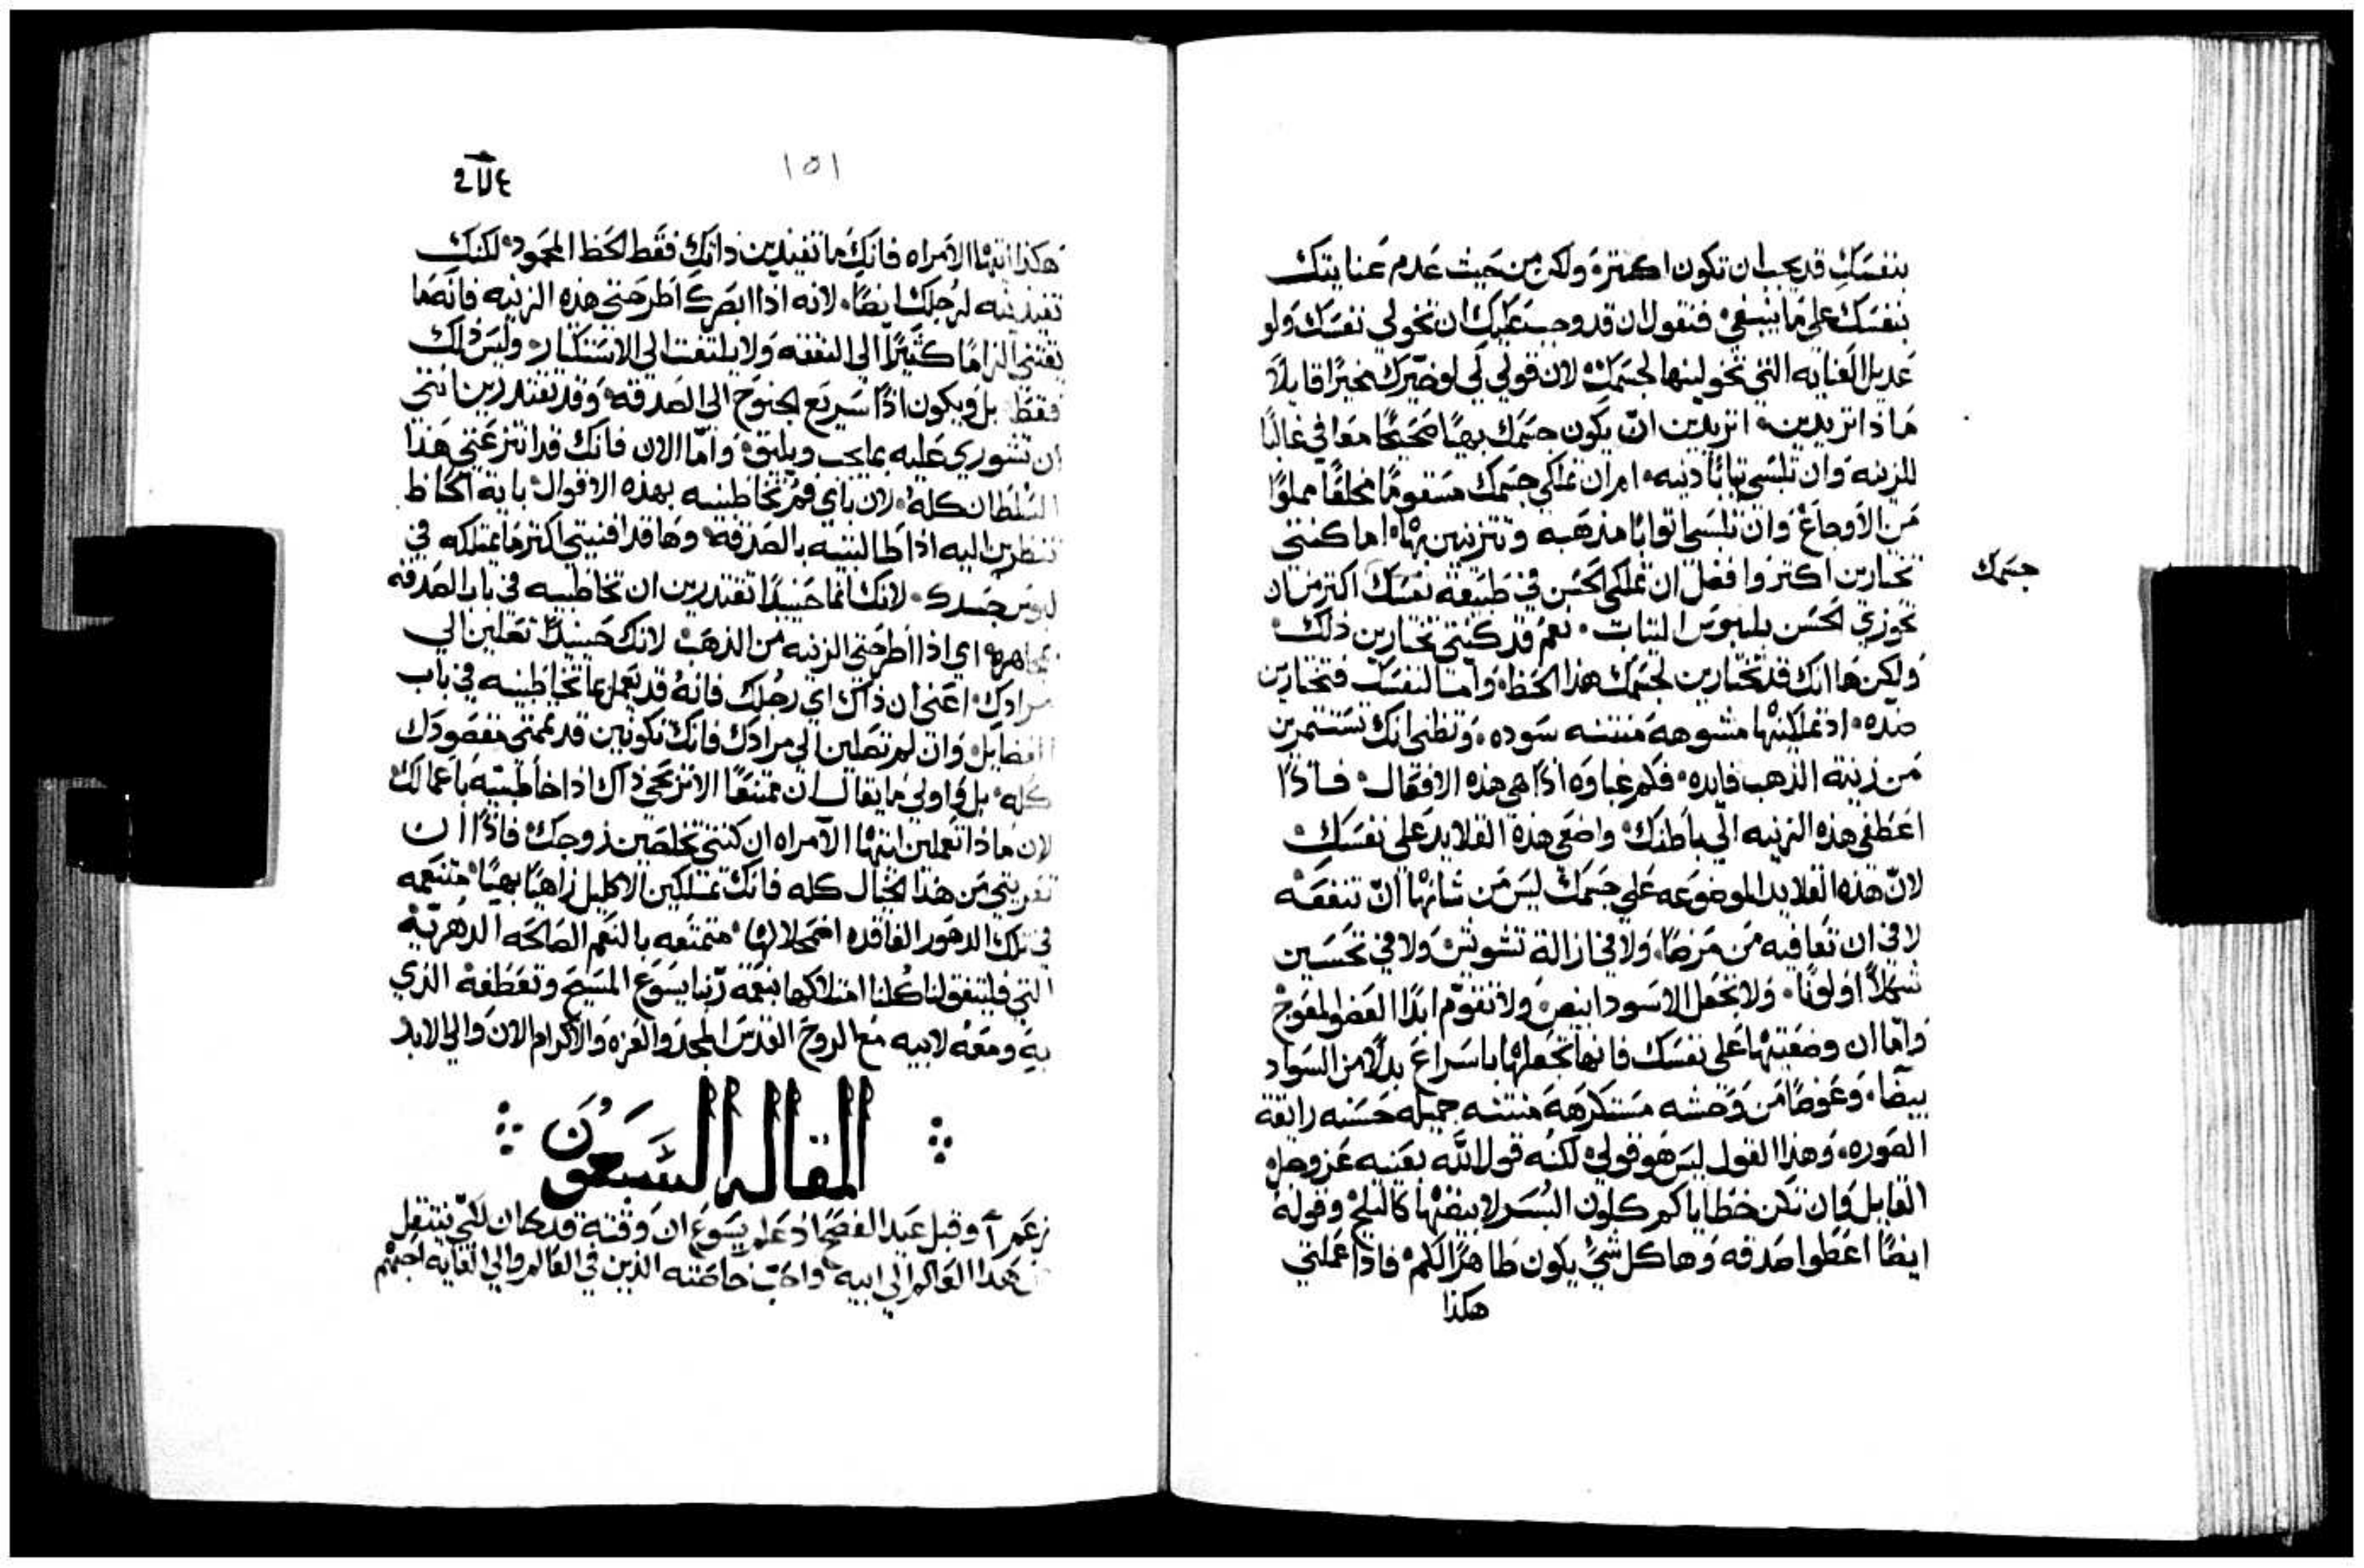 بنفسَكِ قد يجب ان تكون اكتر ولكن من حَيث عَدم عَنايتك
بنفسَك على مَا ينبغي فنقول ان قد وجب عَليك ان تخولي نفسَك ولو
عَديل العَنايه التي تخولينها لجسَمك لان قولي لي لو خيّرك مخيرًا قايلاً
مَاذا تريدين اتريدين ان يكون جسَمك بهيًا صَحيحًا مَعافي غالبًا
للزينه وان تلبسَي تيابًا دنيه ام ان تملكي جسَمك مسَقومًا مملوًا
مَن الاوجاع وان تلبسَي اتوابًا مذهَبه وتتزينين بها اما كنتي
تختارين اكتر وافضل ان تملكي الحَسن في طبيعَة نفسَك اكتر من ان
جسَمك
تحوزي الحَسن بلبوسَ التياب نعَم قد كنتي تختارين ذلك
ولكن هَا انك قد تختارين لجسَمك هذا الحَظ وامَا لنفسَك فتختارين
ضده اذ تملكينها مشوهَه مَنتنه سَوده وتظني انك تستتمرين
مَن زينة الذهب فايده فكم غباوه اذًا هي هذه الافعَال فاذًا
اعَطفي هذه الزينه الي باطنك واضعَي هذه القلايد عَلى نفسَك
لان هَذه القلايد الموضوعَه عَلي جسَمك ليسَ مَن شانها ان تنفعَه
لا في ان تعَافيه مَن مَرض ولا في ازالة تشويش ولا في تحَسَين
شكلاً او لونًا ولا تجعَل الاسَود ابيض ولا تقوّم ابدًا العَضو المعَوج
وامّا ان وضعَتيها عَلى نفسَك فانها تجعَلها باسَراع بدلاً من السَواد
بيضا وعَوضًا مَن وَحَشه مسَتكرهَه مَنتنه جميله حَسَنه رايقة
الصَوره وهَذا القول ليسَ هَو قولي لكنه قول الله بعَينه عَز وجل
القايل وان تكن خطاياكم كلون البُسَر لابيضنها كالتلج وقوله
ايضًا اعَطوا صَدقه وهَا كل شي يكون طاهرًا لكم فاذا عَملتي
هكذا
١٥١
هَكذا ايتها الامَراه فانك مَا تفيدين ذاتك فقط الحَظ المحَمود لكنك
تفيدينه لرجلك ايضًا لانه اذا ابصَرك اطرحَتي هذه الزينه فانه مَا
يقتني الزامًا كثيرًا الى النفقه ولا يلتفت الى الاسَتكتار وليسَ ذلك
فقط بل ويكون اذًا سَريع الجنوح الى الصَدقه وقد تقتدرين انتي
ان تشوري عَليه بما يجب ويليق وامّا الان فانك قد انتزعَتي هَذا
السَلطان كله لان باي فم تخاطبينه بهذه الاقوال باية الحَاظ
تنظرين اليه اذا طالبتيه بالصَدقه وهَا قد افنيتي اكتر مَا يمتلكه في
لبوسَ جسَدك لانك انما حَينيذًا تقتدرين ان تخاطبيه في باب الصَدقه
بمجاهره اي اذا اطرحَتي الزينه من الذهَب لانك حَينيذًا تصَلين الي
مرادك اعَني ان ذاك اي رجُلك فانه قد يعَمل بما تخاطبينه في باب
الفضايل وان لم تصَلين الى مرادك فانك تكونين قد تممتي مقصَودك
كله بل واولي مَا يقال ان ممتنعًا الا تربحَي ذاك اذا خاطبتيه باعَمالك
لان مَاذا تعَملين ايتها الامَراه ان كنتي تخلصَين زوجك فاذًا ان
تعَريتي مَن هَذا الخيال كله فانك تمتلكين الاكليل زاهيًا بهيًا مَتنعَمه
في تلك الدهَور الفاقده اضمحَلالها مَتمتعَه بالنعَم الصَالحَه الدهريّه
التي فليتفق لنا كلنا امتلاكها بنعَمة ربّنا يسَوعَ المَسَيح وتعَطفه الذي
به ومَعَه لابيه مَع الروح القدسَ المجد والعَزه والاكرام الان والي الابد
المقاله السَبعَوُن
زعَم اَ وقبل عَيد الفصَح اذ عَلم يسَوعَ ان وَقته قد كان لكي ينتقل
هَذا العَالم الى ابيه واحَب خاصَته الذين في العَالم والي الغايه احبّهم